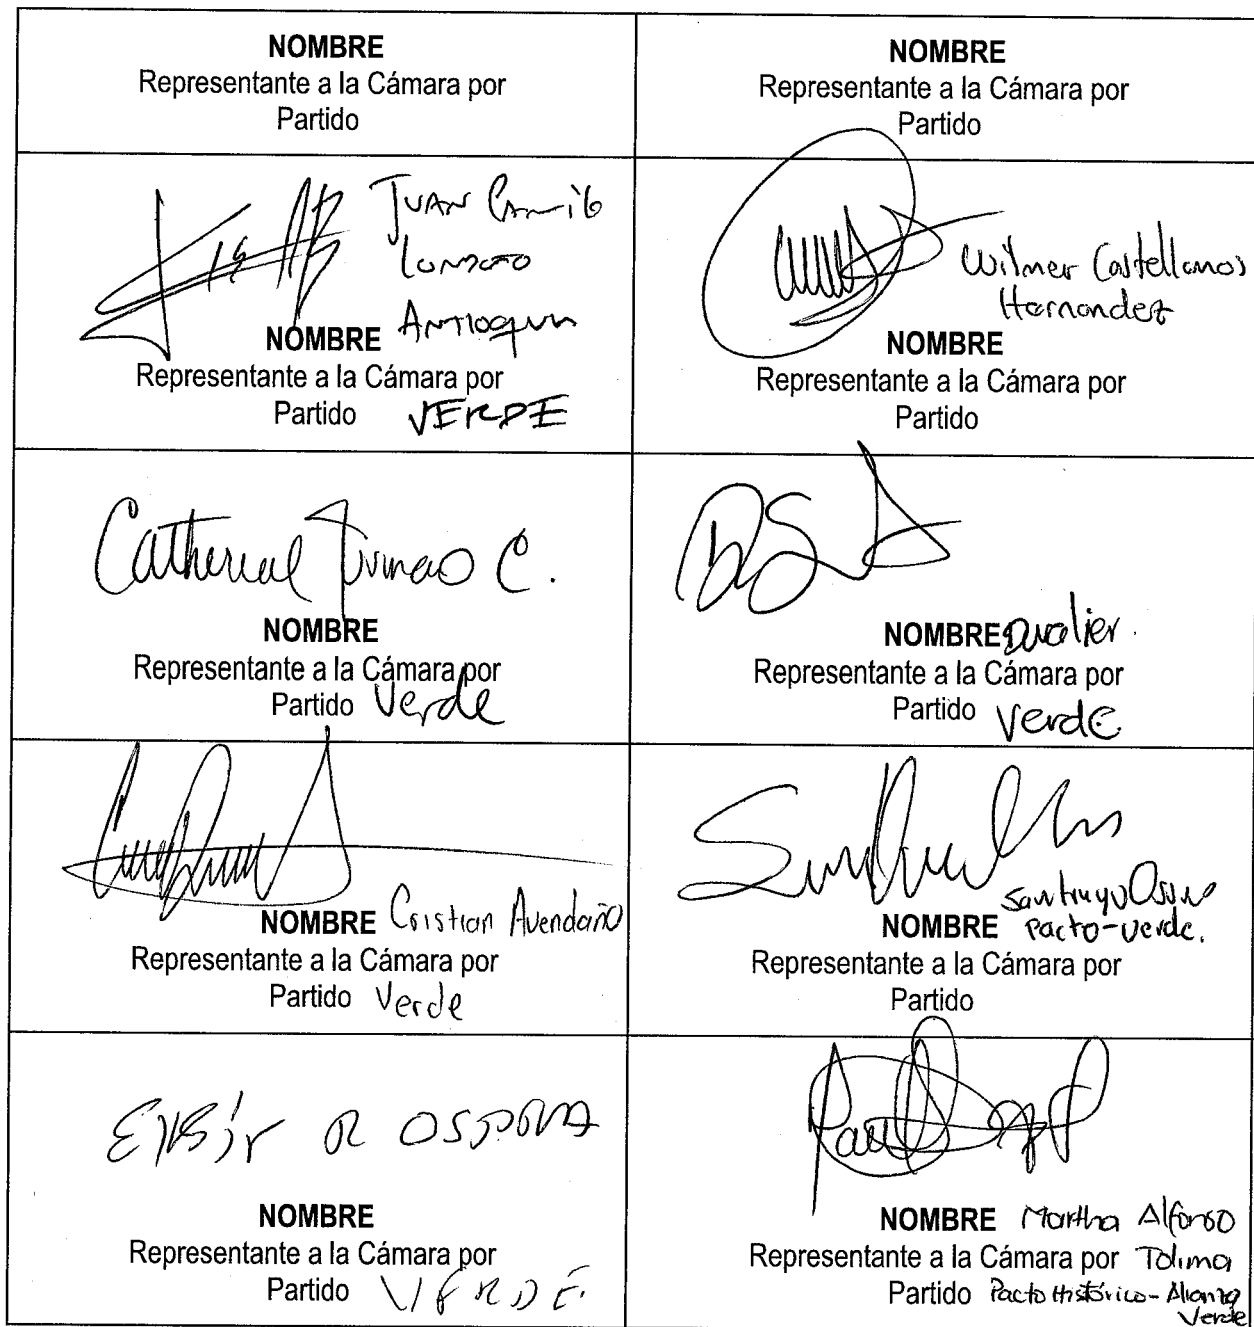 NOMBRE
Representante a la Cámara por
Partido
NOMBRE
Representante a la Cámara por
Partido
JUAN Camilo
LONDOÑO
ANTIOQUIA
NOMBRE
Representante a la Cámara por
Partido VERDE
Wilmer Castellanos
Hernandez
NOMBRE
Representante a la Cámara por
Partido
C.
NOMBRE
Representante a la Cámara por
Partido Verde
NOMBRE Duvalier
Representante a la Cámara por
Partido Verde
NOMBRE Cristian Avendaño
Representante a la Cámara por
Partido Verde
Santiago Osorio
NOMBRE Pacto-verde.
Representante a la Cámara por
Partido
NOMBRE
Representante a la Cámara por
Partido VERDE
NOMBRE Martha Alfonso
Representante a la Cámara por Tolima
Partido Pacto Histórico - Alianza
Verde